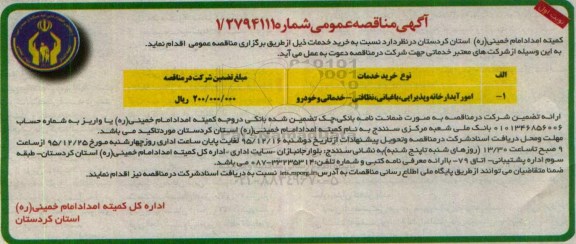 نوبت اول
آگهی مناقصه عمومی شماره ۱/۲۷۹۴۱۱۱
کمیته امداد امام خمینی(ره) استان کردستان در نظر دارد نسبت به خرید خدمات ذیل از طریق برگزاری مناقصه عمومی اقدام نماید.
به این وسیله از شرکت های معتبر خدماتی جهت شرکت در مناقصه دعوت به عمل می آید.
الف نوع خرید خدمات مبلغ تضمین شرکت در مناقصه
۱- امور آبدارخانه و پذیرایی، باغبانی، نظافتی – خدماتی و خودرو ۲۰۰/۰۰۰/۰۰۰ ریال
ارائه تضمین شرکت درمناقصه به صورت ضمانت نامه بانکی، چک تضمین شده بانکی در وجه کمیته امداد امام خمینی(ره) یا واریز به شماره حساب
۰۱۰۱۳۴۶۸۵۶۰۰۶ بانک ملی شعبه مرکزی سنندج به نام کمیته امداد امام خمینی(ره) استان کردستان مورد تائید می باشد.
مهلت ومحل دریافت اسناد شرکت در مناقصه وتحویل پیشنهادات از تاریخ دوشنبه ۹۵/۱۲/۱۶ لغایت پایان ساعت اداری روز چهارشنبه مورخ ۹۵/۱۲/۲۵ از ساعت
۹ صبح تا ساعت ۱۳/۳۰ (روزهای شنبه تا پنج شنبه) به نشانی سنندج، بلوار جانبازان – سایت اداری – اداره کل کمیته امداد امام خمینی(ره) استان کردستان- طبقه
سوم اداره پشتیبانی- اتاق ۷۹- با ارائه معرفی نامه کتبی و شماره تلفن: ۳۳۲۳۵۳۱۴-۰۸۷ می باشد.
ضمنا متقاضیان می توانند از طریق پایگاه ملی اطلاع رسانی مناقصات به آدرس iets.mporg.ir نسبت به دریافت اسناد شرکت در مناقصه نیز اقدام نمایند.
اداره کل کمیته امداد امام خمینی(ره)
استان کردستان